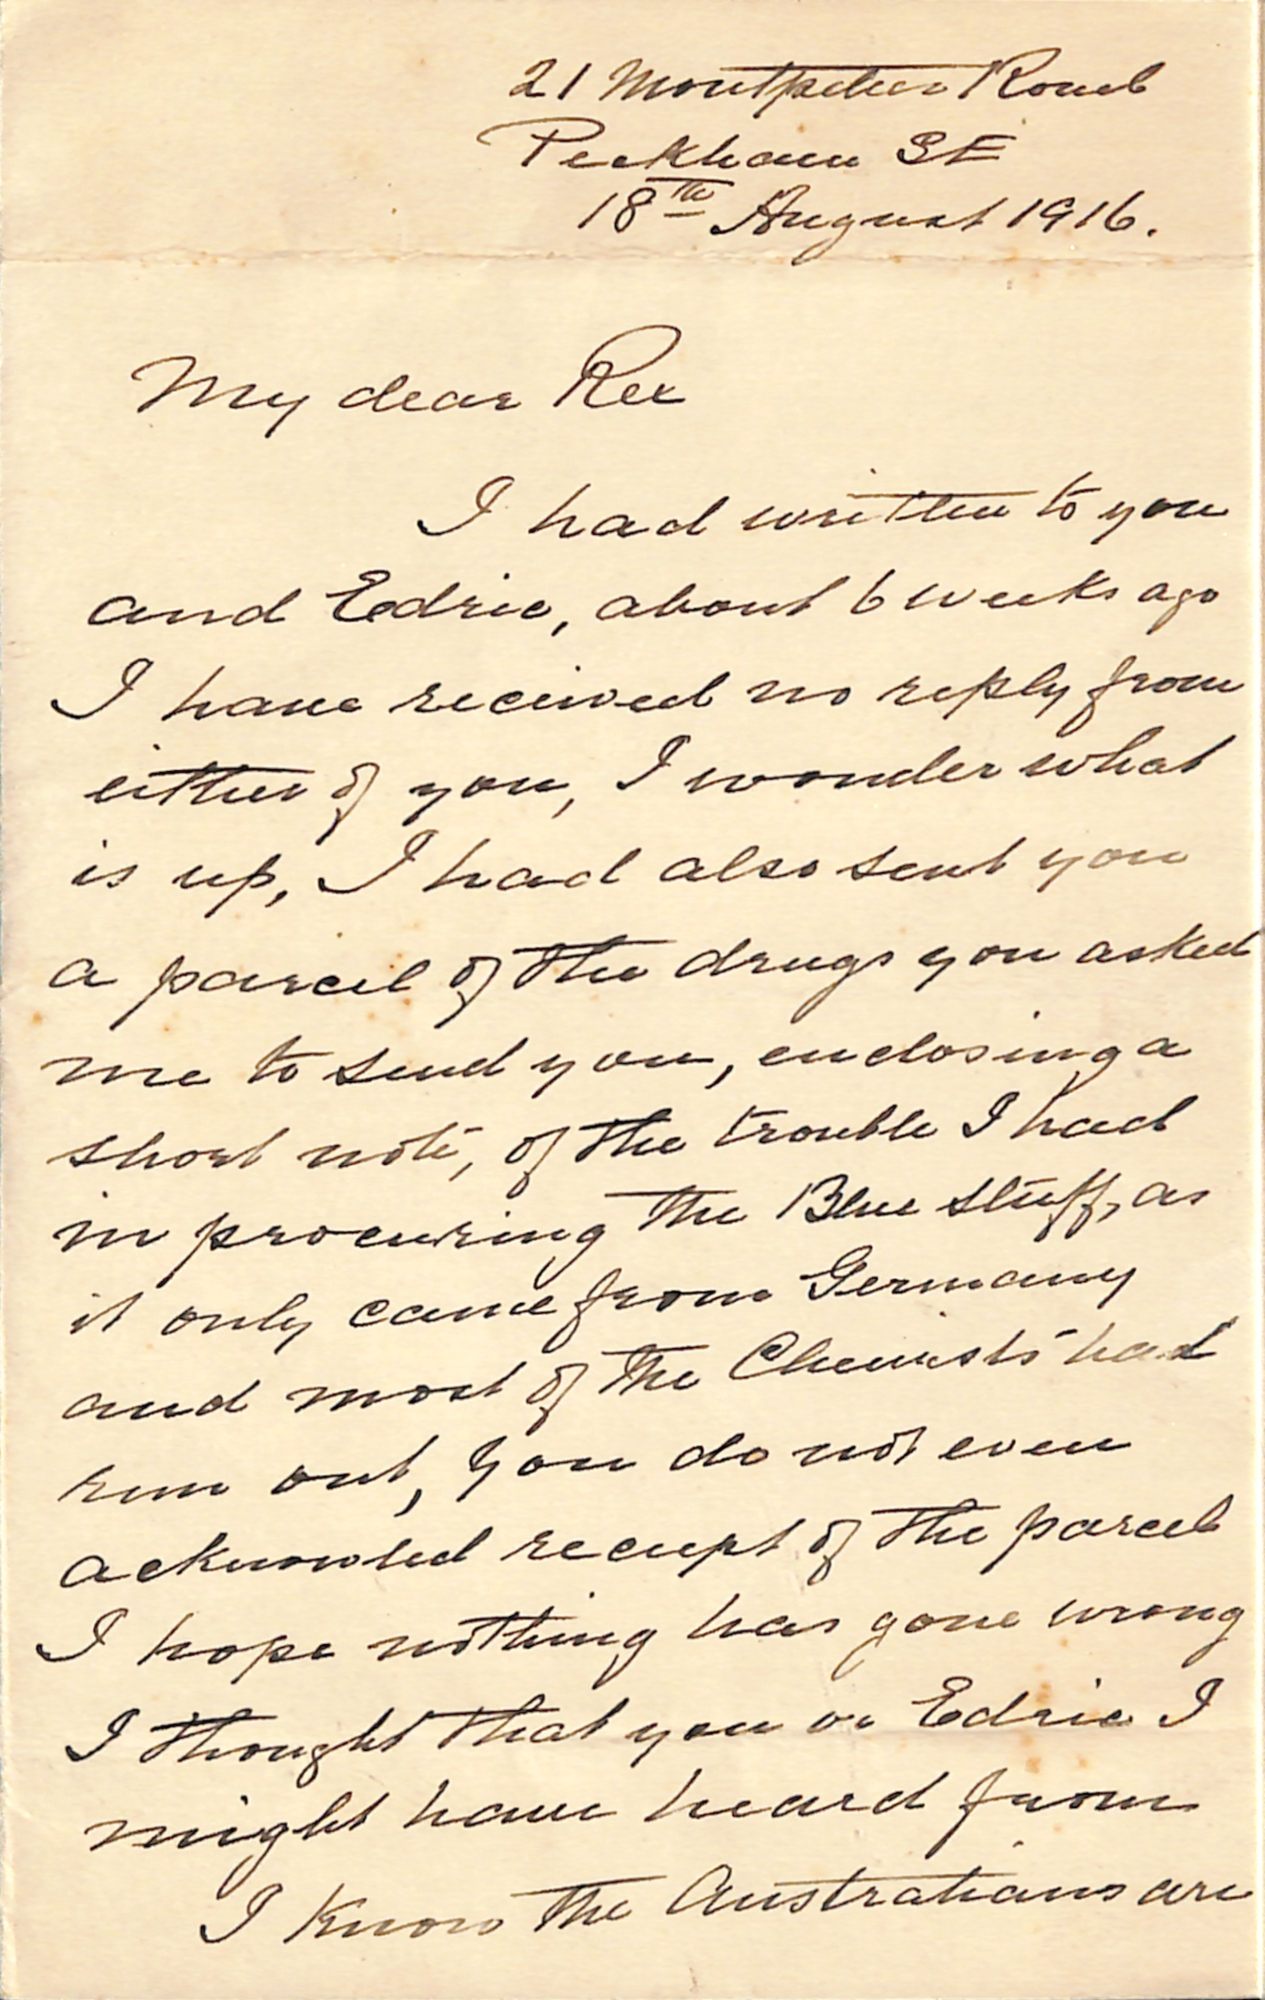 21 Montpelier Road
Peckham SE
18th August 1916.
My dear Rex
I had written to you
and Edric, about 6 weeks ago
I have received no reply from
either of you, I wonder what
is up, I had also sent you
a parcel of the drugs you asked
me to send you, enclosing a
short note, of the trouble I had
in procuring the Blue stuff, as
it only came from Germany
and most of the Chemists had
run out, you do not even
acknowled receipt of the parcel
I hope nothing has gone wrong
I thought that you or Edric I
might have heard from
I know the Australians are